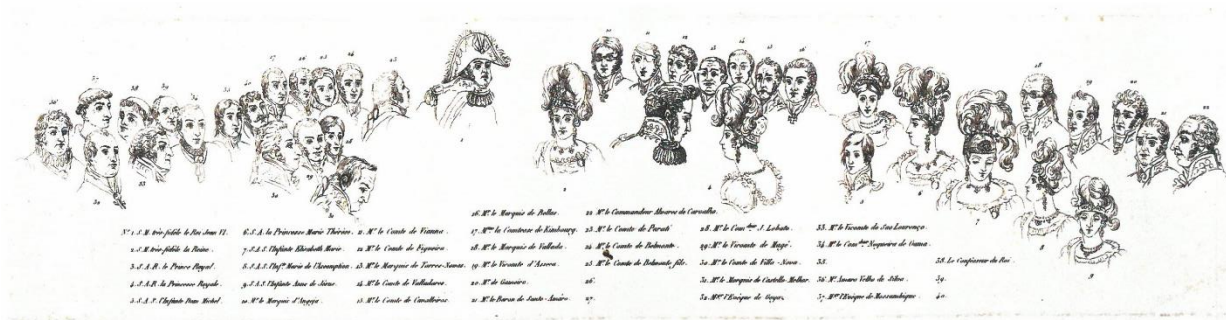 N.º 1. S. M. très-fidèle le Roi Jean VI.
2. S. M. très-fidèle la Reine.
3. S. A. R. le Prince Royal.
4. S. A. R. la Princesse Royale.
5. S. A. S. l'Infante Dom Michel.
6. S. A. la Princesse Marie Thérèse.
7. S. A. S. l'Infante Elisabeth Marie.
8. S. A. S. l'Inf.te Marie de l'Assomption.
9. S. A. S. l'Infante Anne de Jésus.
10. M.r le Marquis d'Angeja
11. M.r le Comte de Vianna.
12. M.r le Comte de Figueira.
13. M.r le Marquis de Torres-Novas.
14. M.r le Comte de Valladares.
15. M.r le Comte de Cavalleiros.
16. M.r le Marquis de Bellas.
17. M.me la Comtesse de
18. M.r le Marquis de Vallada.
19. M.r le Vicomte d'Asseca.
20. M.r de Gameiro.
21. M.r le Baron de Santo-Amaro.
22. M.r le Commandeur Alvares de Carvalho.
23. M.r le Comte de Parati
24. M.r le Comte de Belmonte.
25. M.r le Comte de Belmonte fils.
26.
27.
28. M.r le Com.deur J. Lobato.
29. M.r le Vicomte de Magé.
30. M.r le Comte de Villa-Nova.
31. M.r le Marquis de Castello Melhor.
32. M.gr l'Evêque de Goyaz.
33. M.r le Vicomte de San Lourenço.
34. M.r le Com.deur Nogueira de Gama.
35.
36. M.r Amaro Velho da Silva.
37. M.gr l'Evêque de Mossambique.
38. Le Confesseur du Roi.
39.
40.